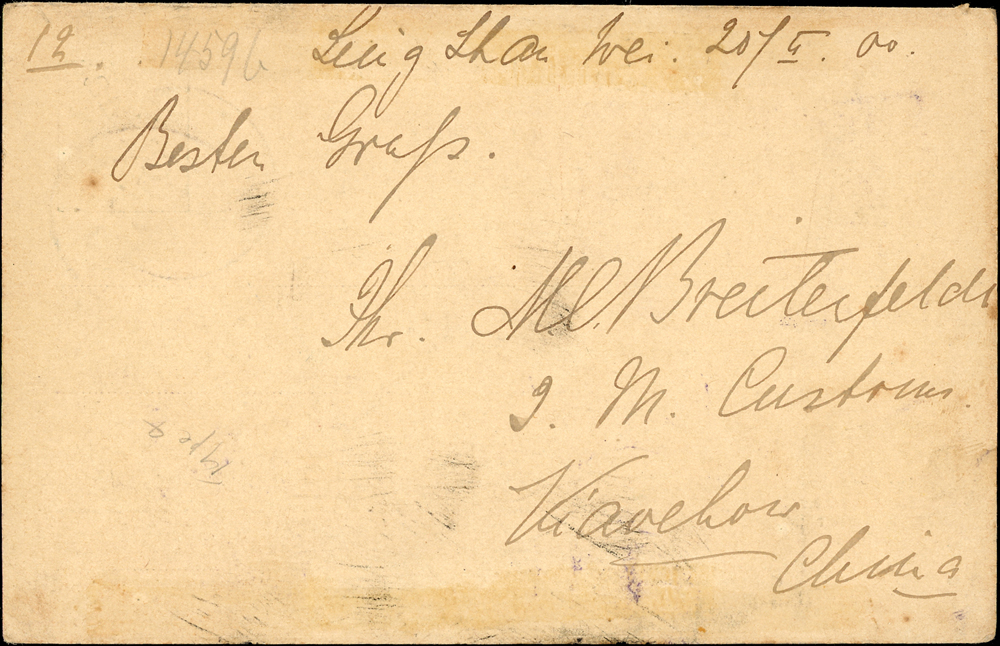 12. 14596 Ling Shan Wei. 20/II. 00.
Besten Gruß.
Ihr. M. Breiterfeldt
I. M. Customs.
Kiaochow
China
type a